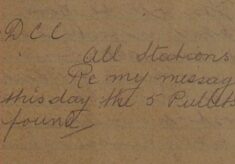 D.C.C
All Stations
Re my messag
this day the 5 Pullets
found